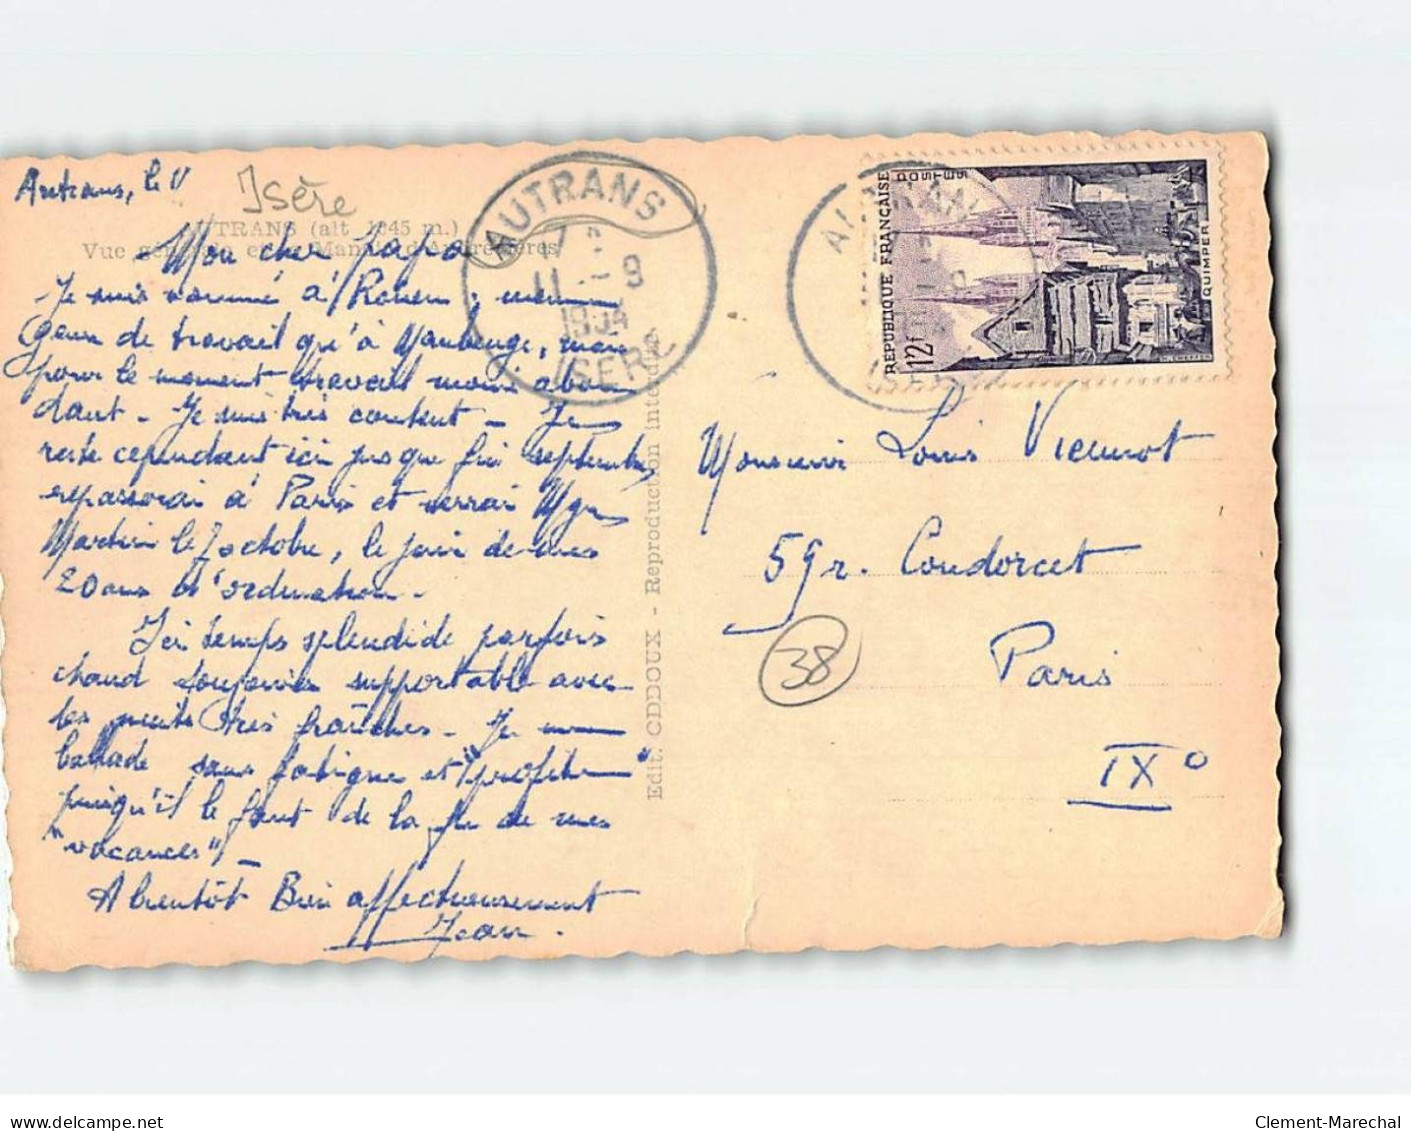 Autrans, le V
Isère
AUTRANS (alt. 1045 m.)
Vue générale et
Mon cher papa
Je suis nommé à Rouen ; même
genre de travail qu'à Maubeuge, mais
pour le moment travail moins abon
dant - Je suis très content - Je
reste cependant ici jusque fin septembre,
repasserai à Paris et verrai Mgr
Martin le 7 octobre, le jour de mes
20 ans d'ordination -
Ici temps splendide parfois
chaud toujours supportable avec
les nuits très fraîches - Je me
ballade sans fatigue et "profite"
puisqu'il le faut de la fin de mes
"vacances" -
A bientôt Bien affectueusement
Jean.
AUTRANS
7 h
11 - 9
1954
ISERE
Edit. CDDOUX - Reproduction interdite
REPUBLIQUE FRANÇAISE
POSTES
12f
QUIMPER
Monsieur Louis Viennot
59 r. Condorcet
Paris
IX°
38
Clement-Marechal